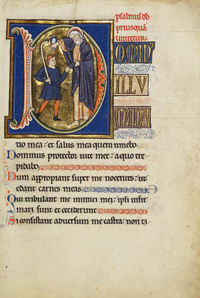 psalmus dd
priusquā
liniretur
OMINVS
ILLV
MINATIO
tio mea: et salus mea quem timebo.
Dominus protector vite mee: a quo tre
pidabo.
Dum appropiant super me nocentes: ut
edant carnes meas.
Qui tribulant me inimici mei: ipsi infir
mati sunt et ceciderunt.
Si consistant adversum me castra: non ti